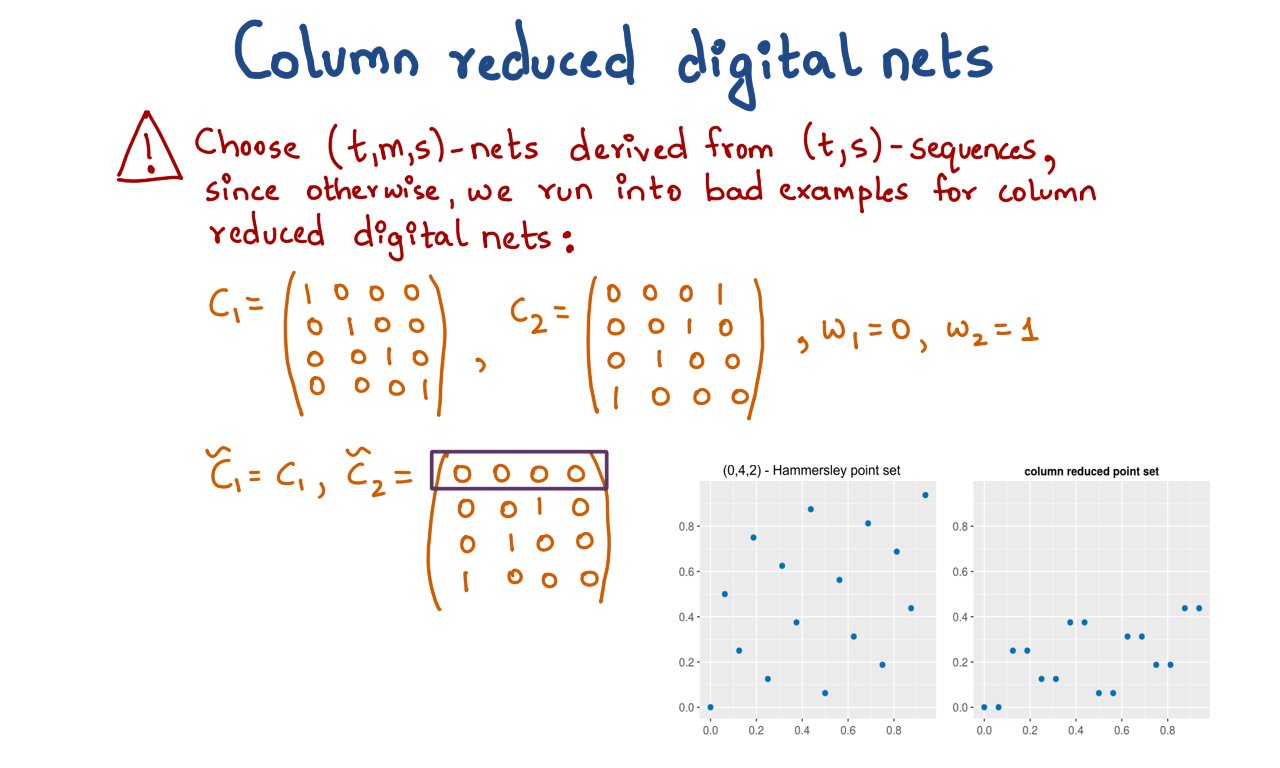 Column reduced digital nets
! Choose (t,m,s)-nets derived from (t,s)-sequences,
since otherwise, we run into bad examples for column
reduced digital nets:
C₁ = ( 1 0 0 0
0 1 0 0
0 0 1 0
0 0 0 1 ) ,
C₂ = ( 0 0 0 1
0 0 1 0
0 1 0 0
1 0 0 0 )
, w₁ = 0, w₂ = 1
C̃₁ = C₁ , C̃₂ = ( 0 0 0 0
0 0 1 0
0 1 0 0
1 0 0 0 )
(0,4,2) - Hammersley point set
0.8
0.6
0.4
0.2
0.0
0.0 0.2 0.4 0.6 0.8
column reduced point set
0.8
0.6
0.4
0.2
0.0
0.0 0.2 0.4 0.6 0.8